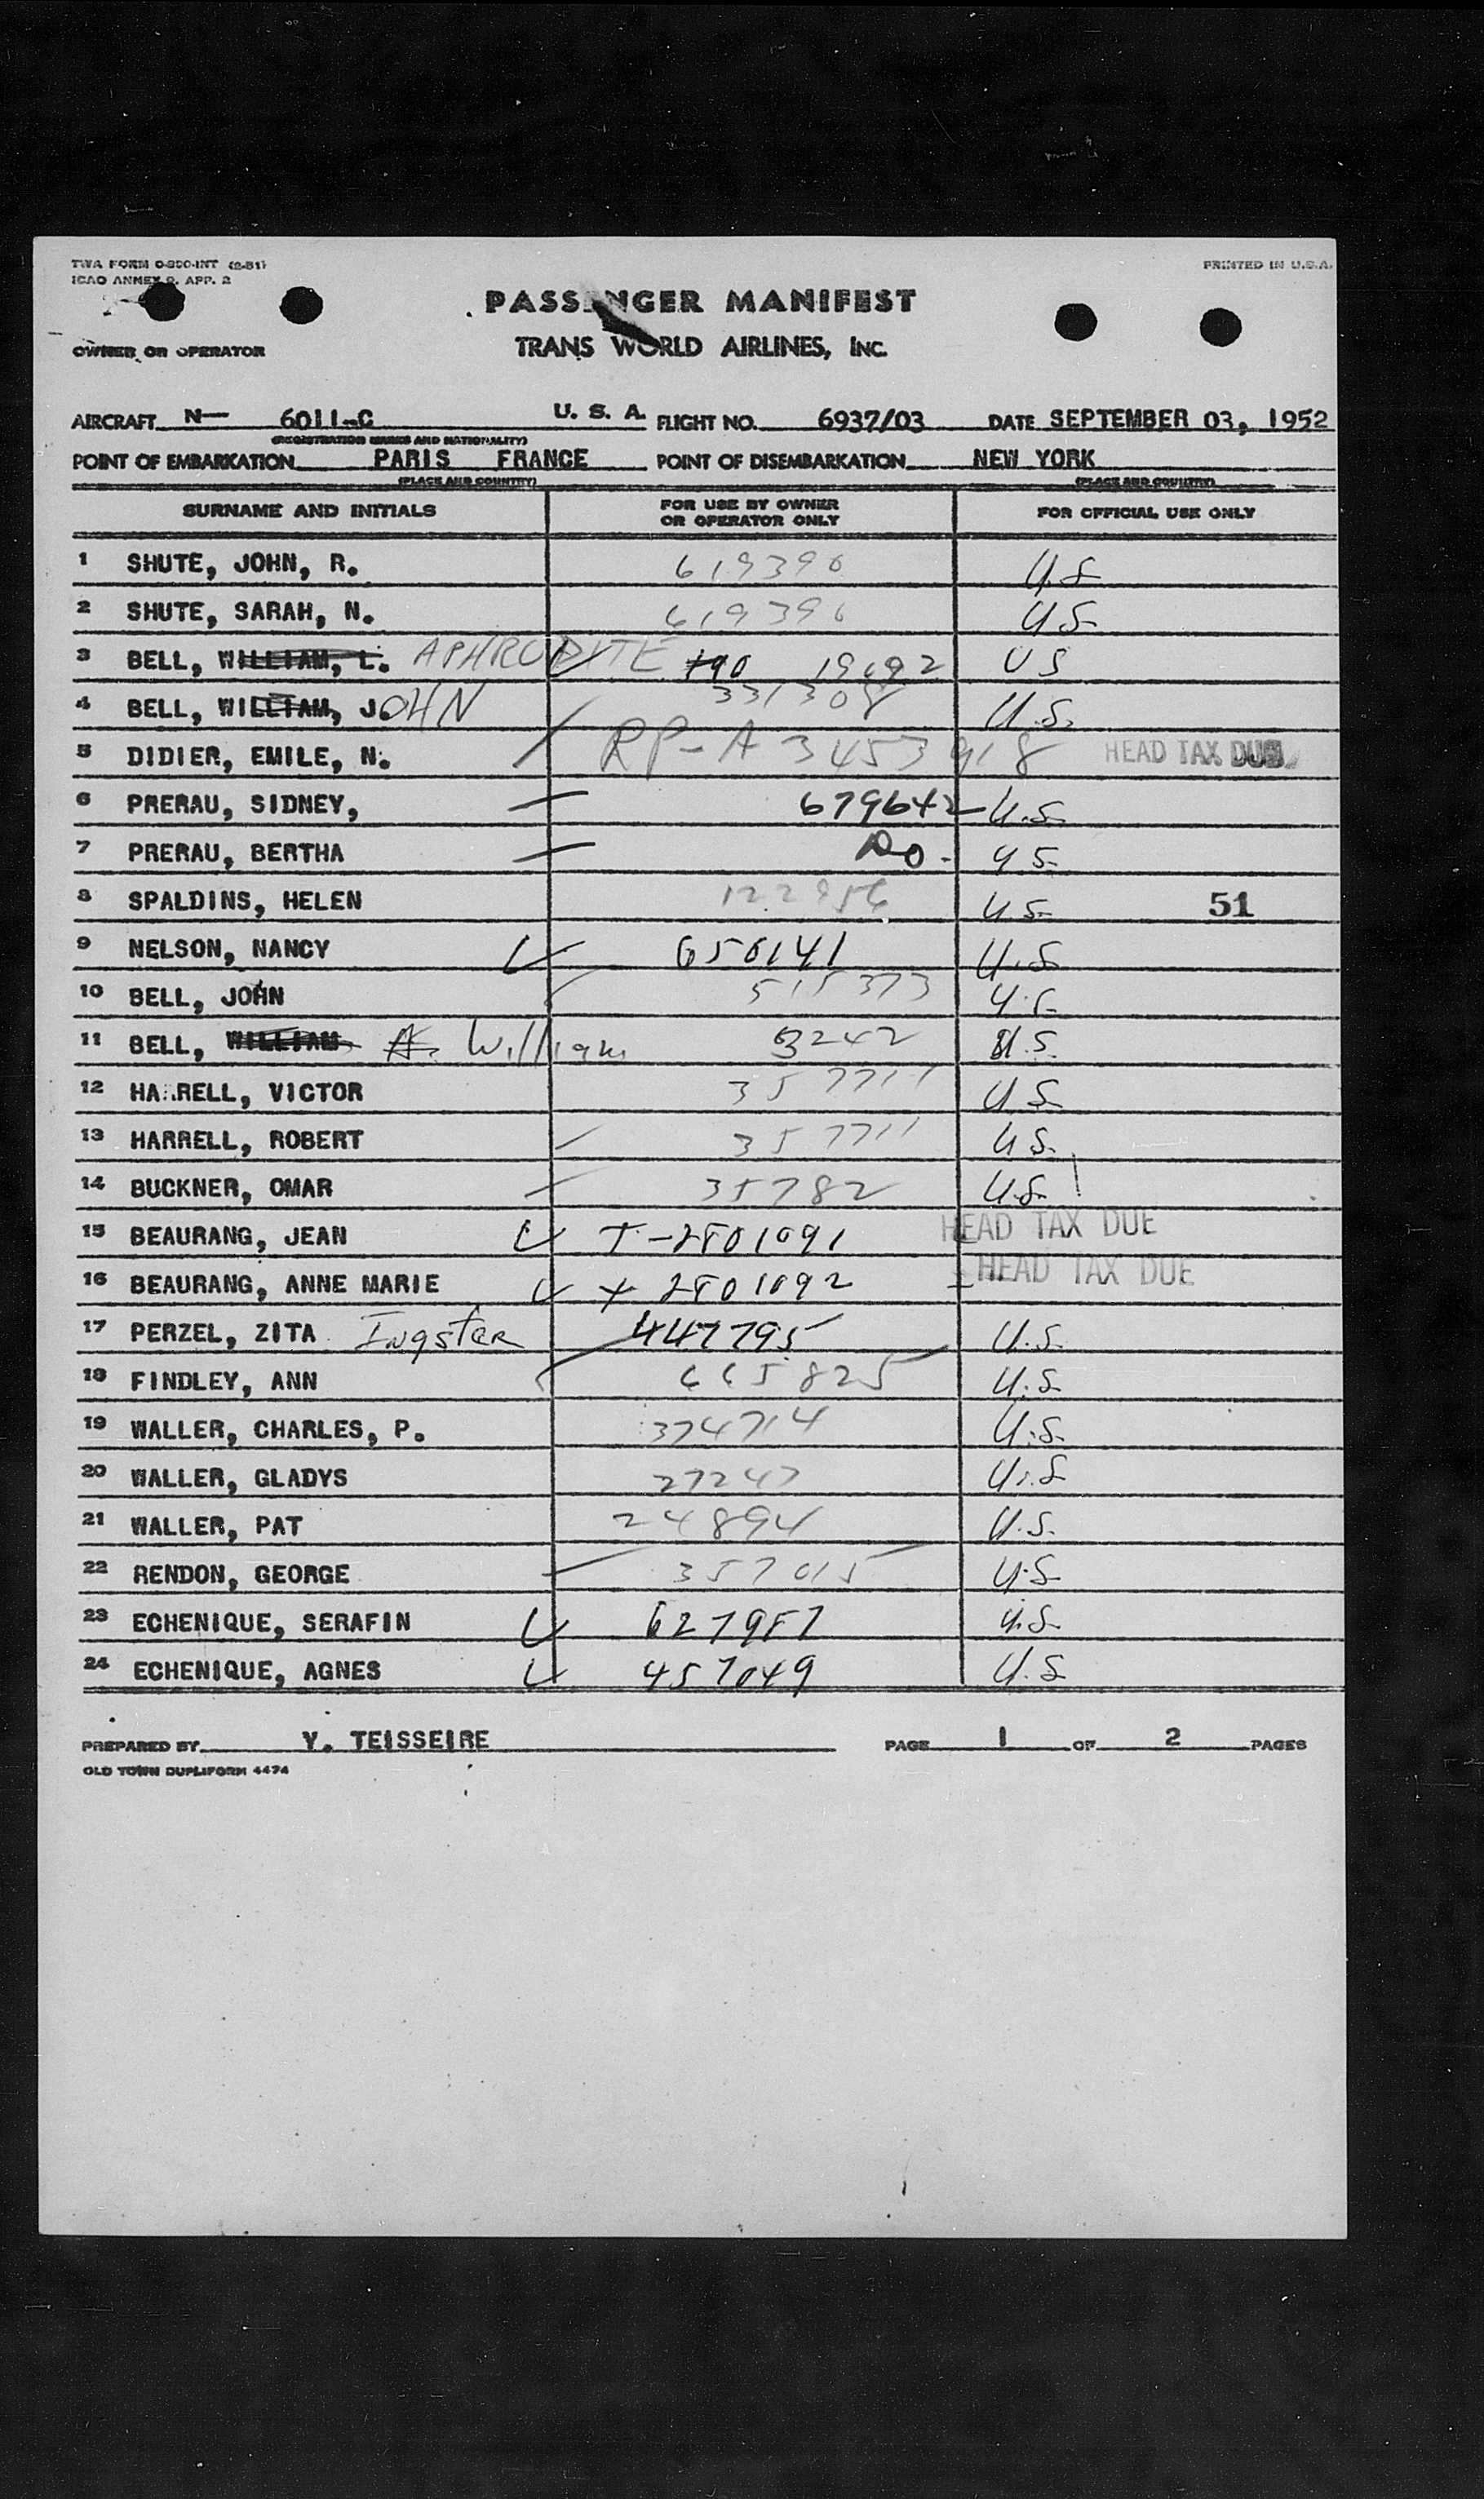 TWA FORM O-800-INT (2-51)
ICAO ANNEX 9, APP. 2
PRINTED IN U.S.A.
PASSENGER MANIFEST
OWNER OR OPERATOR
TRANS WORLD AIRLINES, INC.
AIRCRAFT N— 6011-C U. S. A. FLIGHT NO. 6937/03 DATE SEPTEMBER 03, 1952
(REGISTRATION MARKS AND NATIONALITY)
POINT OF EMBARKATION PARIS FRANCE POINT OF DISEMBARKATION NEW YORK
(PLACE AND COUNTRY) (PLACE AND COUNTRY)
SURNAME AND INITIALS FOR USE BY OWNER OR OPERATOR ONLY FOR OFFICIAL USE ONLY
1 SHUTE, JOHN, R. 619396 U.S
2 SHUTE, SARAH, N. 619396 US
3 BELL, WILLIAM, L. APHRODITE 190 19692 US
4 BELL, WILLIAM, JOHN 331308 U.S.
5 DIDIER, EMILE, N. RP-A3453918 HEAD TAX DUE
6 PRERAU, SIDNEY, 679642 U.S.
7 PRERAU, BERTHA Do. US
8 SPALDINS, HELEN 122956 US 51
9 NELSON, NANCY 656141 U.S
10 BELL, JOHN 515373 U.S
11 BELL, WILLIAM A. William 3242 U.S.
12 HARRELL, VICTOR 357711 U S
13 HARRELL, ROBERT 357711 U S.
14 BUCKNER, OMAR 35782 U.S.
15 BEAURANG, JEAN T-2801091 HEAD TAX DUE
16 BEAURANG, ANNE MARIE 2801092 HEAD TAX DUE
17 PERZEL, ZITA Ingster 447795 U.S.
18 FINDLEY, ANN 665825 U.S.
19 WALLER, CHARLES, P. 374714 U.S.
20 WALLER, GLADYS 27247 U.S
21 WALLER, PAT 24894 U.S.
22 RENDON, GEORGE 357015 U.S
23 ECHENIQUE, SERAFIN 627987 U.S.
24 ECHENIQUE, AGNES 457049 U.S
PREPARED BY Y. TEISSEIRE PAGE 1 OF 2 PAGES
OLD TOWN DUPLIFORM 4474